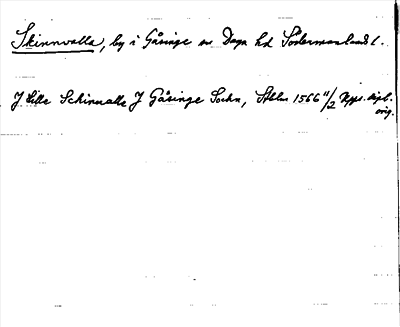 Skinnvalla, by i Gåsinge sn Daga hd Södermanlands l.
J Lille Schinualle J Gåsinge Sochn, Sthlm 1566 11/2 Upps. dipl.
orig.